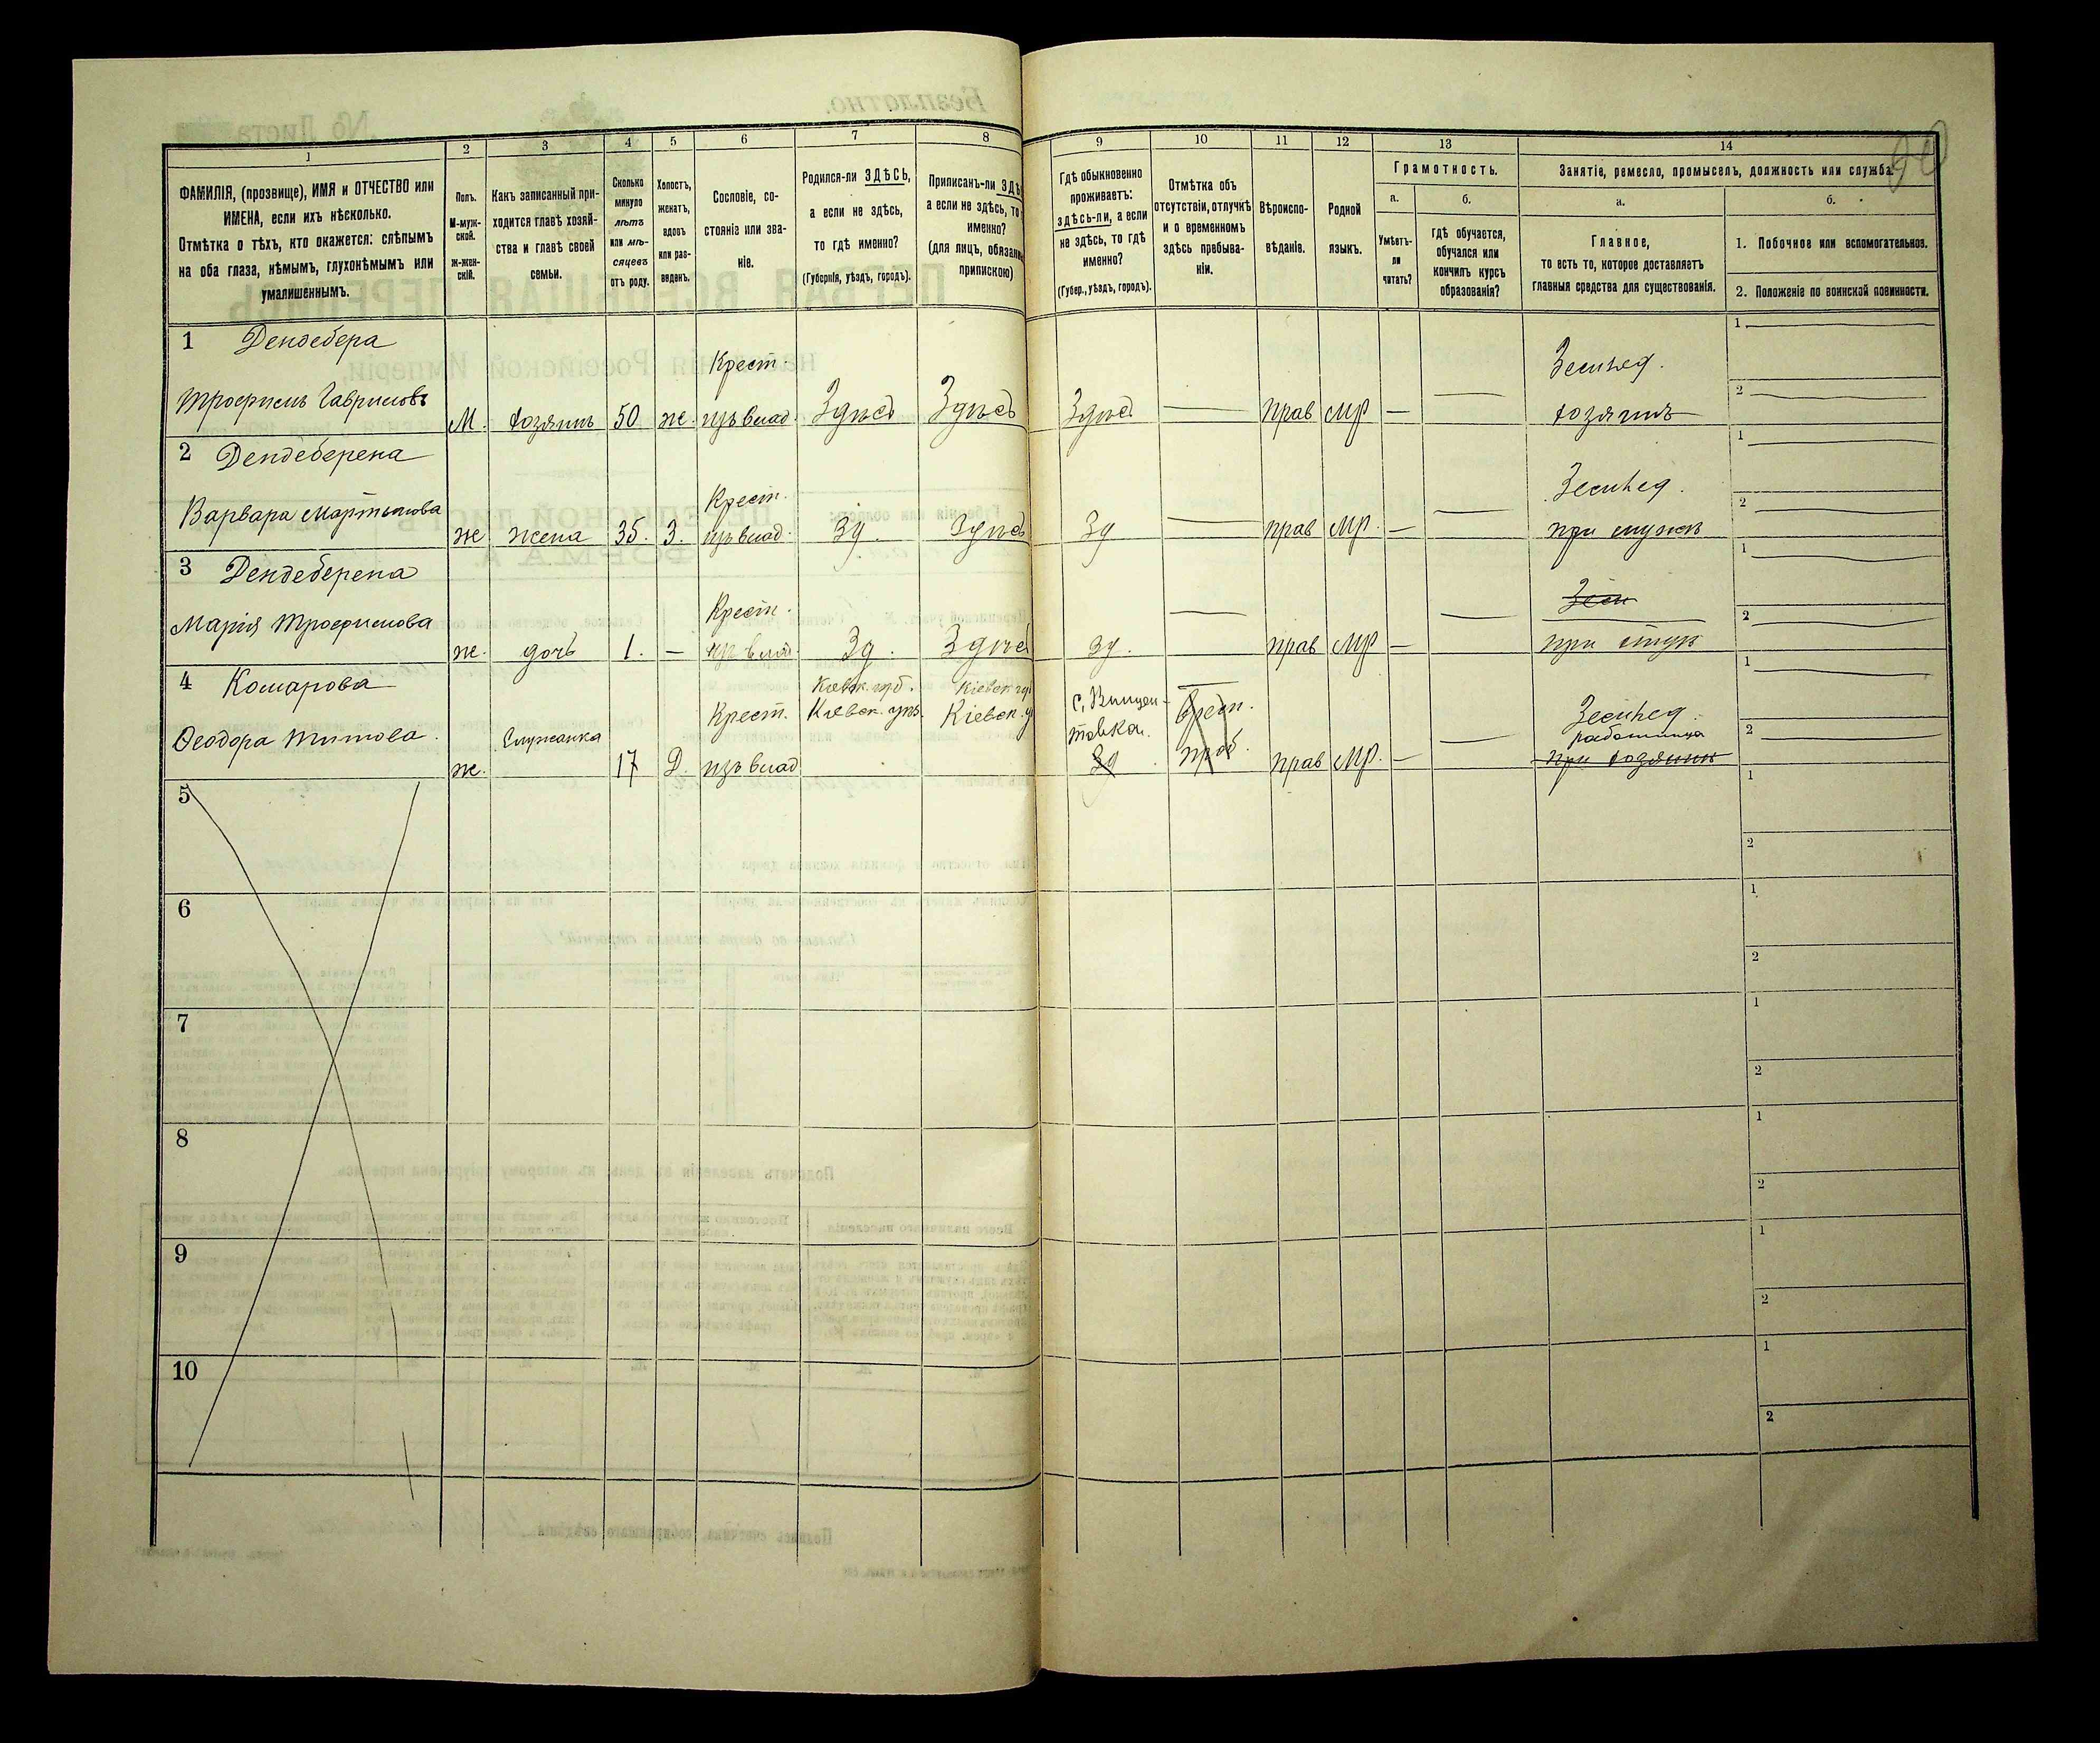 1 2 3 4 5 6 7 8 9 10 11 12 13 14
ФАМИЛІЯ, (прозвище), ИМЯ и ОТЧЕСТВО или
ИМЕНА, если ихъ нѣсколько.
Отмѣтка о тѣхъ, кто окажется: слѣпымъ
на оба глаза, нѣмымъ, глухонѣмымъ или
умалишеннымъ.
Полъ.
М-муж-
ской.
Ж-жен-
скій.
Какъ записанный при-
ходится главѣ хозяй-
ства и главѣ своей
семьи.
Сколько
минуло
лѣтъ
или мѣ-
сяцевъ
отъ роду.
Холостъ,
женатъ,
вдовъ
или раз-
веденъ.
Сословіе, со-
стояніе или зва-
ніе.
Родился-ли ЗДѢСЬ,
а если не здѣсь,
то гдѣ именно?
(Губернія, уѣздъ, городъ).
Приписанъ-ли ЗДѢ
а если не здѣсь, то
именно?
(для лицъ, обязан
припискою)
Гдѣ обыкновенно
проживаетъ:
здѣсь-ли, а если
не здѣсь, то гдѣ
именно?
(Губер., уѣздъ, городъ).
Отмѣтка объ
отсутствіи, отлучкѣ
и о временномъ
здѣсь пребыва-
ніи.
Вѣроиспо-
вѣданіе.
Родной
языкъ.
Грамотность.
а.
Умѣетъ-
ли
читать?
б.
гдѣ обучается,
обучался или
кончилъ курсъ
образованія?
Занятіе, ремесло, промыселъ, должность или служба.
а.
Главное,
то есть то, которое доставляетъ
главныя средства для существованія.
б.
1. Побочное или вспомогательное.
2. Положеніе по воинской повинности.
1 Дендебера Крест. Землед. 1
Трофимъ Гавриловъ М. хозяинъ 50 ж. изъ влад. Здѣсь Здѣсь Здѣсь — прав мр — — хозяинъ 2
2 Дендеберена Крест. Землед. 1
Варвара Мартынова ж жена 35. З. изъ влад. Зд. Здѣсь Зд — прав мр. — — при мужѣ 2
3 Дендеберена Крест. Зем 1
Марія Трофимова ж. дочь 1. — изъ влад. Зд. Здѣсь зд. — прав мр — — при отцѣ 2
4 Комарова Крест. Кіевск. губ. Кіевск. уѣз. Кіевск гу Кіевск. у Врем. Землед. 1
Феодора Титова. ж. Служанка 17 Д. изъ влад Зд проб. прав мр. — — работница 2
при хозяинѣ
5 1
2
6 1
2
7 1
2
8 1
2
9 1
2
10 1
2